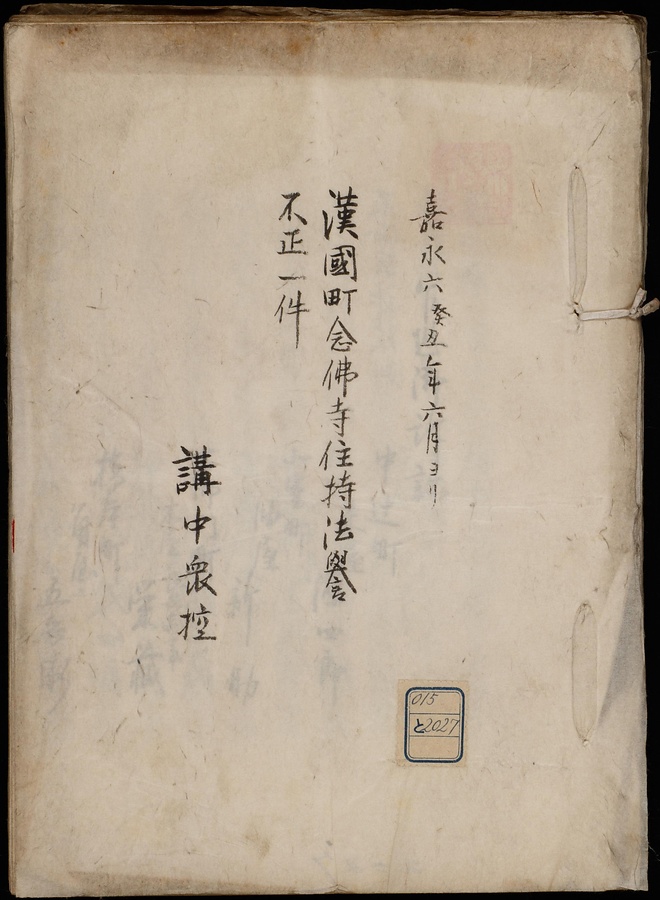 嘉永六癸丑年六月ヨリ
漢國町念佛寺住持法譽
不正一件
講中衆控
015
と2027